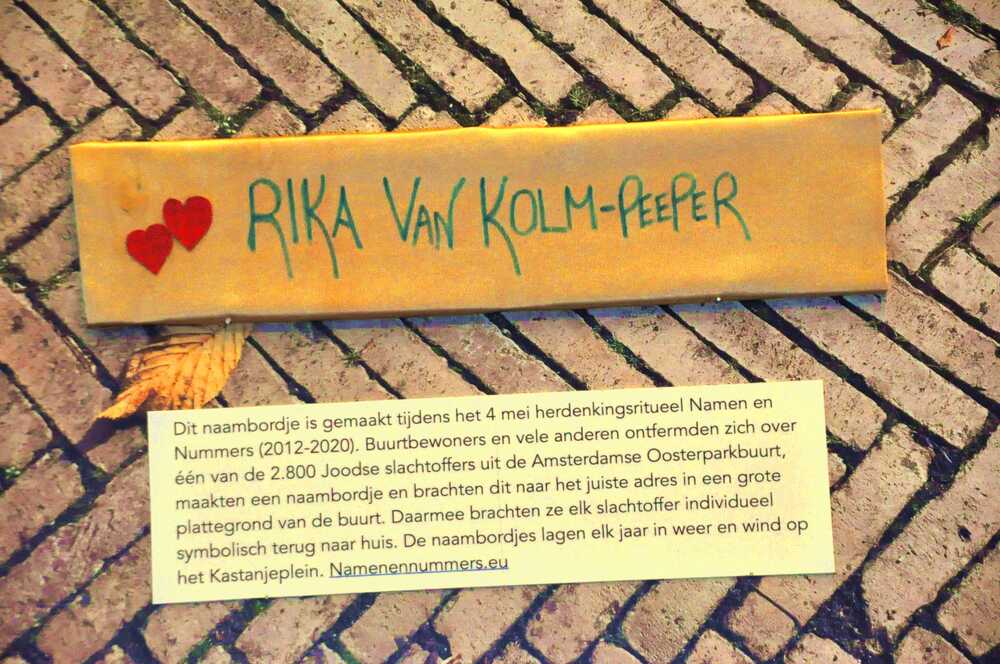 RIKA VAN KOLM-PEEPER
Dit naambordje is gemaakt tijdens het 4 mei herdenkingsritueel Namen en
Nummers (2012-2020). Buurtbewoners en vele anderen ontfermden zich over
één van de 2.800 Joodse slachtoffers uit de Amsterdamse Oosterparkbuurt,
maakten een naambordje en brachten dit naar het juiste adres in een grote
plattegrond van de buurt. Daarmee brachten ze elk slachtoffer individueel
symbolisch terug naar huis. De naambordjes lagen elk jaar in weer en wind op
het Kastanjeplein. Namenennummers.eu